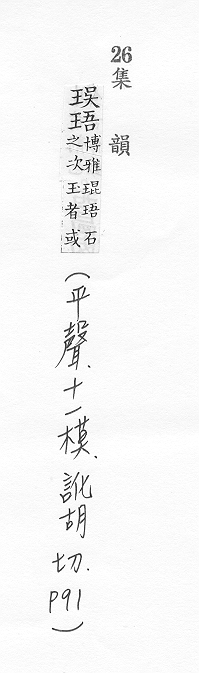 26集韻
珸
博雅琨珸石
之次王者或
(平聲.十一模.訛胡切.P91)